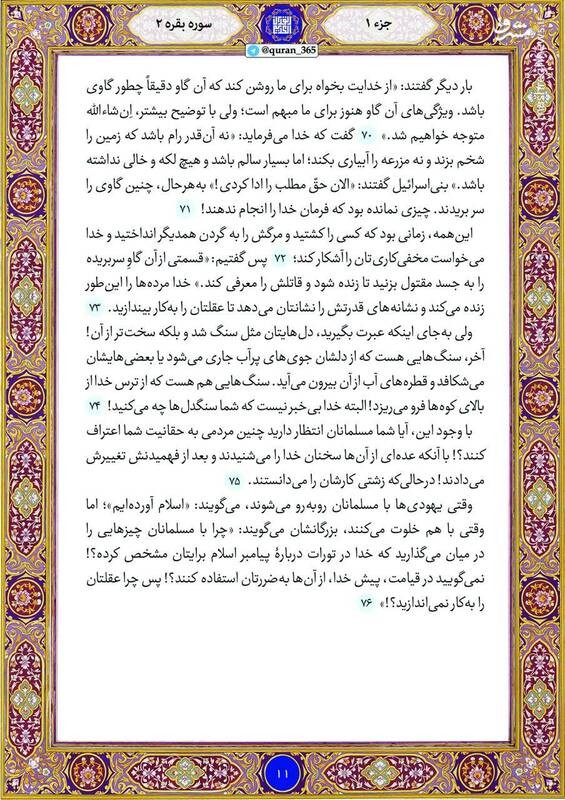 جزء ۱
سوره بقره ۲
@quran_365
مشرق
بار دیگر گفتند: «از خدایت بخواه برای ما روشن کند که آن گاو دقیقاً چطور گاوی
باشد. ویژگی‌های آن گاو هنوز برای ما مبهم است؛ ولی با توضیح بیشتر، اِن‌شاءالله
متوجه خواهیم شد.» ۷۰ گفت که خدا می‌فرماید: «نه آن‌قدر رام باشد که زمین را
شخم بزند و نه مزرعه را آبیاری بکند؛ اما بسیار سالم باشد و هیچ لکه و خالی نداشته
باشد.» بنی‌اسرائیل گفتند: «الان حقّ مطلب را ادا کردی!» به‌هرحال، چنین گاوی را
سر بریدند. چیزی نمانده بود که فرمان خدا را انجام ندهند! ۷۱
این‌همه، زمانی بود که کسی را کشتید و مرگش را به گردن همدیگر انداختید و خدا
می‌خواست مخفی‌کاری‌تان را آشکار کند؛ ۷۲ پس گفتیم: «قسمتی از آن گاوِ سربریده
را به جسد مقتول بزنید تا زنده شود و قاتلش را معرفی کند.» خدا مرده‌ها را این‌طور
زنده می‌کند و نشانه‌های قدرتش را نشانتان می‌دهد تا عقلتان را به‌کار بیندازید. ۷۳
ولی به‌جای اینکه عبرت بگیرید، دل‌هایتان مثل سنگ شد و بلکه سخت‌تر از آن!
آخر، سنگ‌هایی هست که از دلشان جوی‌های پرآب جاری می‌شود یا بعضی‌هایشان
می‌شکافد و قطره‌های آب از آن بیرون می‌آید. سنگ‌هایی هم هست که از ترس خدا از
بالای کوه‌ها فرو می‌ریزد! البته خدا بی‌خبر نیست که شما سنگدل‌ها چه می‌کنید! ۷۴
با وجود این، آیا شما مسلمانان انتظار دارید چنین مردمی به حقانیت شما اعتراف
کنند؟! با آنکه عده‌ای از آن‌ها سخنان خدا را می‌شنیدند و بعد از فهمیدنش تغییرش
می‌دادند! درحالی‌که زشتی کارشان را می‌دانستند. ۷۵
وقتی یهودی‌ها با مسلمانان روبه‌رو می‌شوند، می‌گویند: «اسلام آورده‌ایم»؛ اما
وقتی با هم خلوت می‌کنند، بزرگانشان می‌گویند: «چرا با مسلمانان چیزهایی را
در میان می‌گذارید که خدا در تورات دربارهٔ پیامبر اسلام برایتان مشخص کرده؟!
نمی‌گویید در قیامت، پیش خدا، از آن‌ها به‌ضررتان استفاده کنند؟! پس چرا عقلتان
را به‌کار نمی‌اندازید؟!» ۷۶
۱۱